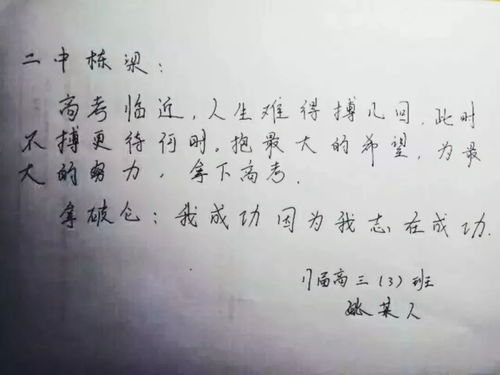 二中栋梁：
高考临近，人生难得搏几回，此时
不搏更待何时。抱最大的希望，为最
大的努力，拿下高考。
拿破仑：我成功因为我志在成功.
17届高三（3）班
姚某人